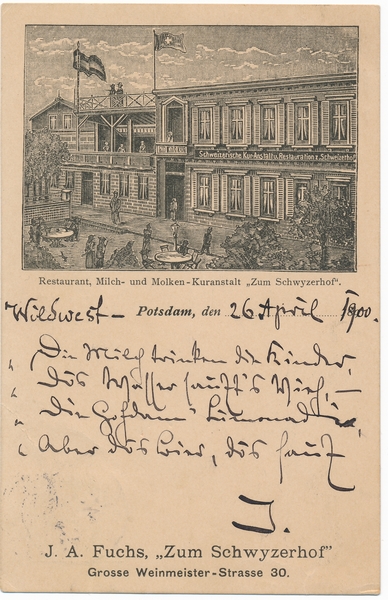 Schweizerische Kur-Anstalt u. Restauration z. Schweizerhof
Restaurant, Milch- und Molken-Kuranstalt „Zum Schwyzerhof“.
Wildwest – Potsdam, den 26 April 1900.
„Die Milch trinken die Kinder,
„Das Wasser sauft's Vieh, –
„Die Gohdam' Limonad
„Aber das Bier, das sauf
I.
J. A. Fuchs, „Zum Schwyzerhof”
Grosse Weinmeister-Strasse 30.